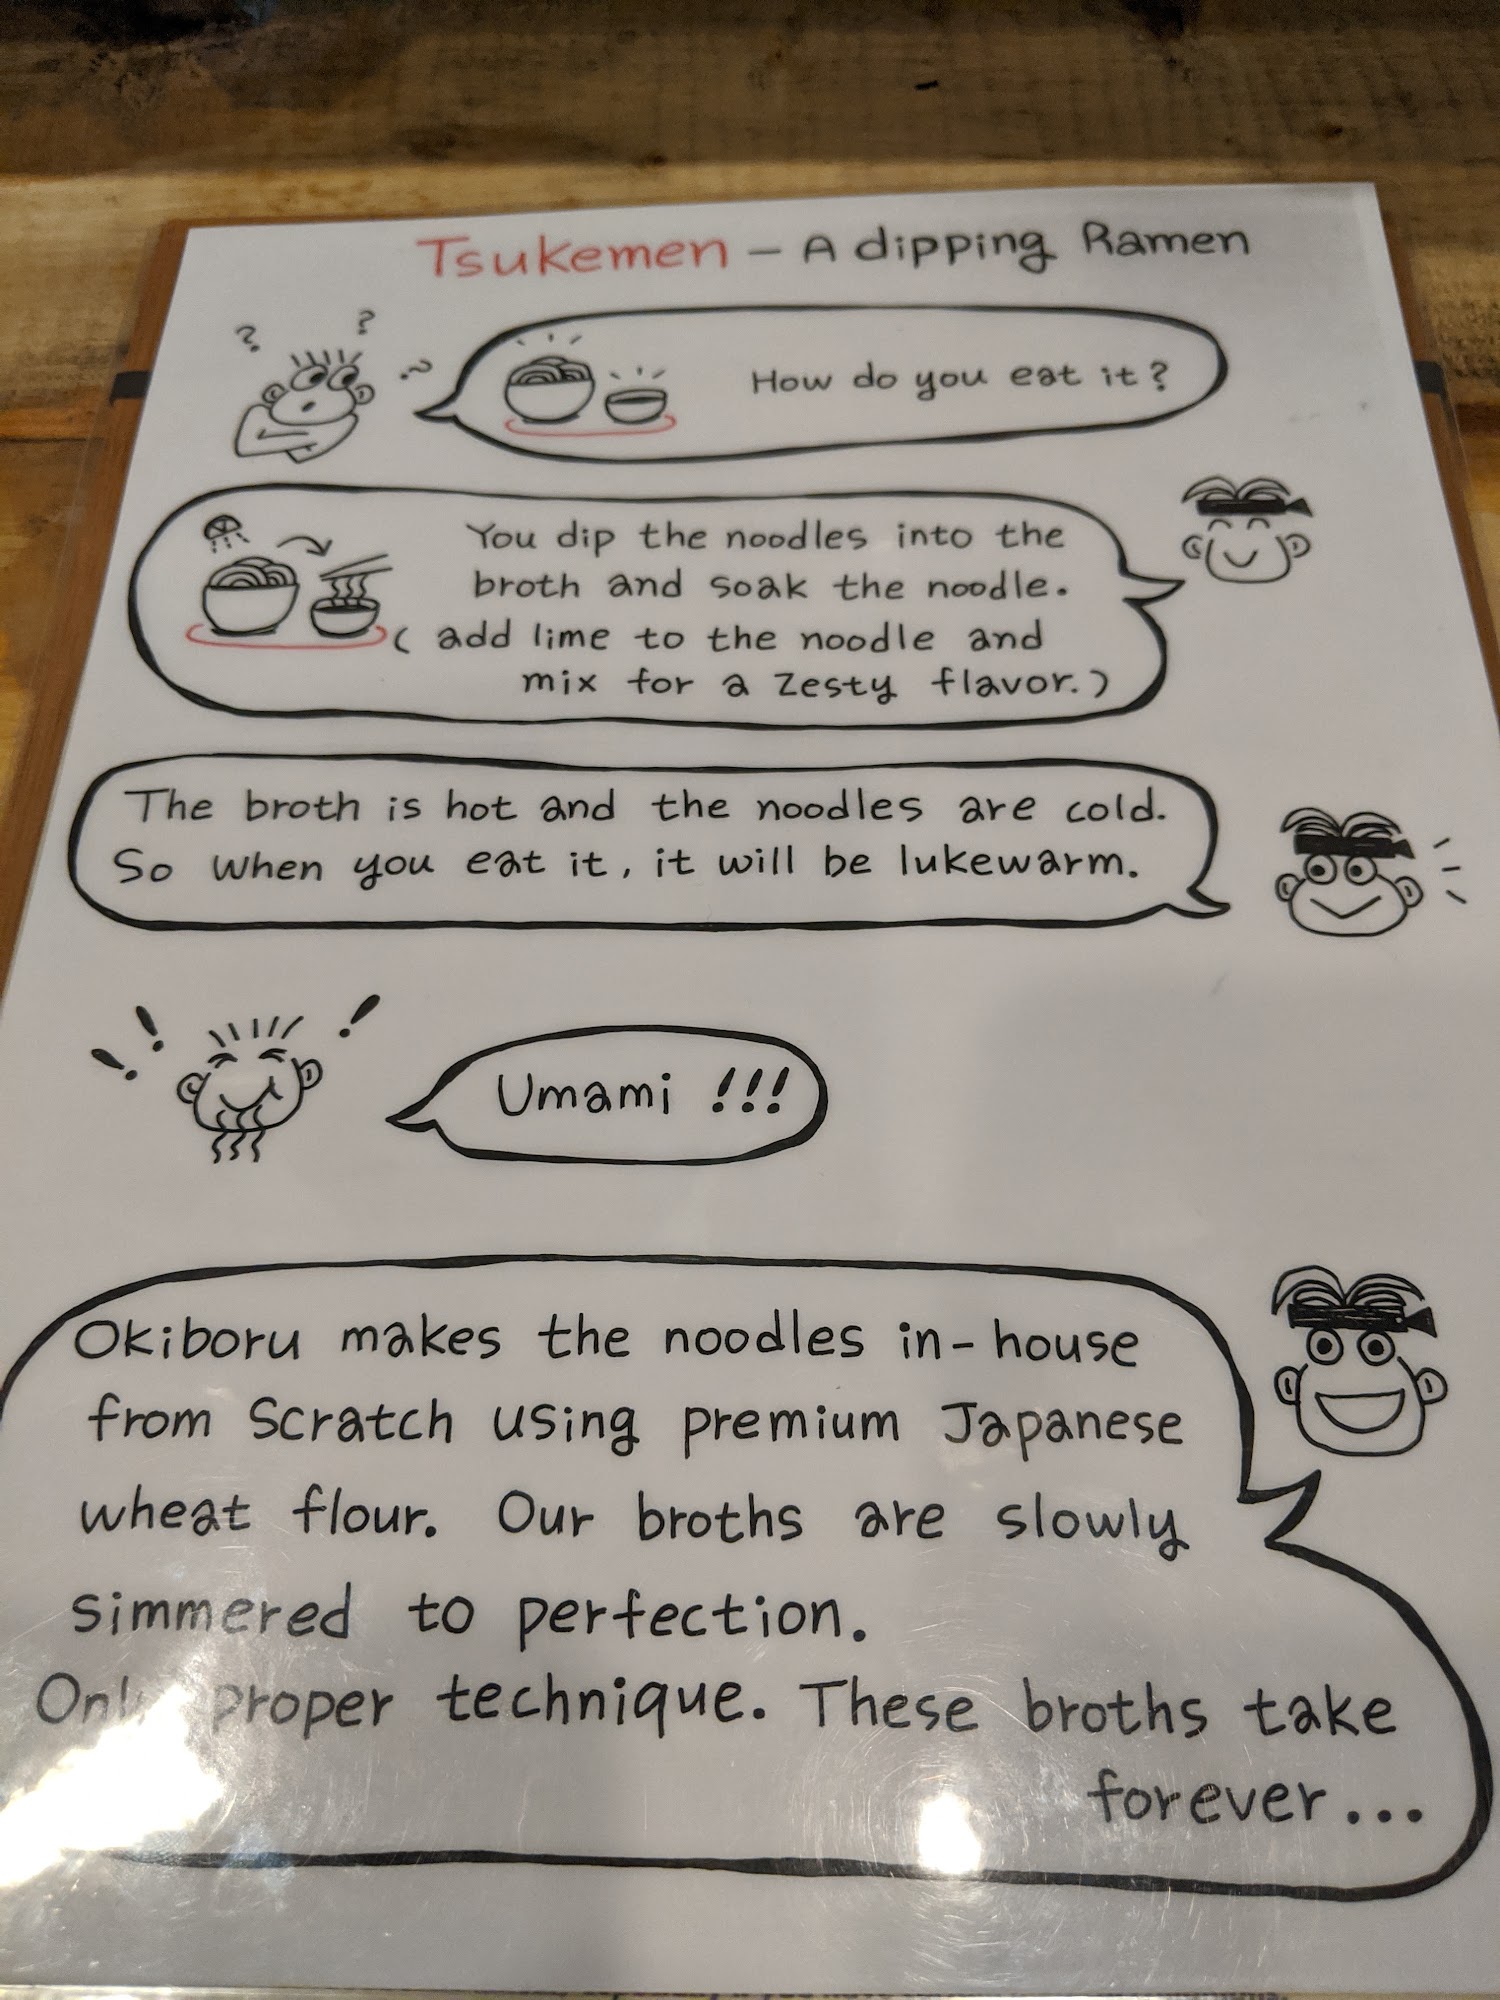 Tsukemen – A dipping Ramen
? ? ?
How do you eat it?
You dip the noodles into the
broth and soak the noodle.
( add lime to the noodle and
mix for a zesty flavor.)
The broth is hot and the noodles are cold.
So when you eat it, it will be lukewarm.
! ! !
Umami !!!
Okiboru makes the noodles in-house
from Scratch using premium Japanese
wheat flour. Our broths are slowly
simmered to perfection.
Only proper technique. These broths take
forever...